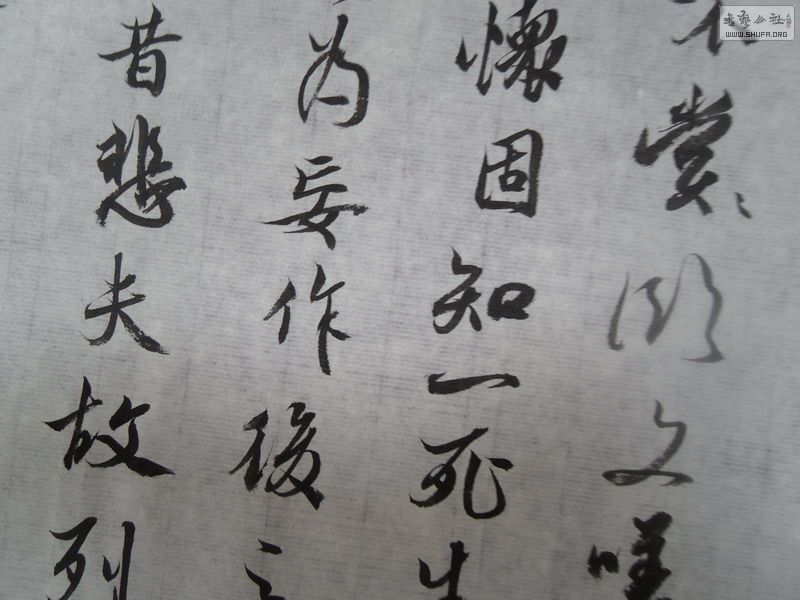 嘗臨文嗟
懷固知一死生
為妄作後之
昔悲夫故列
书艺公社
WWW.SHUFA.ORG